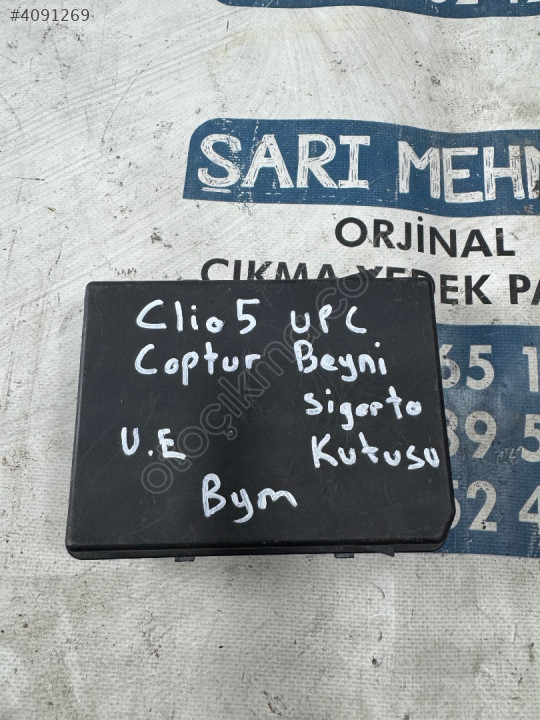 #4091269
SARI MEHM
ORJİNAL
ÇIKMA YEDEK PA
Clio 5 UPC
Coptur Beyni
sigorta
U.E Kutusu
Bym
65 1
39 5
52 4
otoçıkma